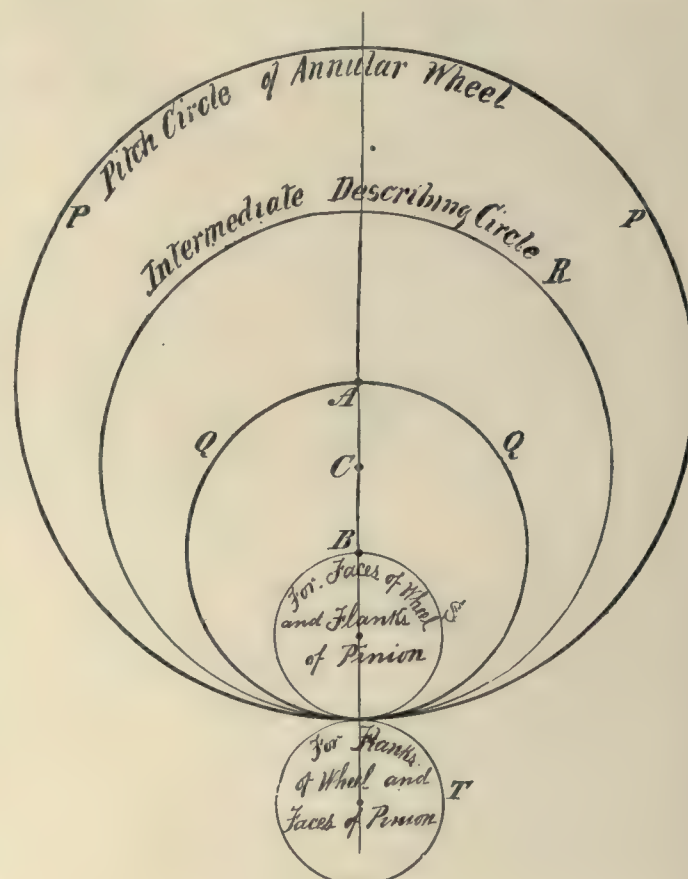 Pitch Circle of Annular Wheel
P
P
Intermediate Describing Circle R
A
Q
Q
C
B
For Faces of Wheel
S
and Flanks
of Pinion
For Flanks
of Wheel and
T
Faces of Pinion